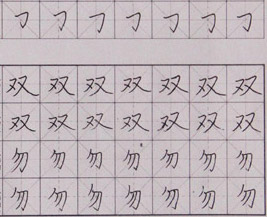 ㇆ ㇆ ㇆ ㇆ ㇆ ㇆ ㇆
双 双 双 双 双 双 双
双 双 双 双 双 双 双
勿 勿 勿 勿 勿 勿 勿
勿 勿 勿 勿 勿 勿 勿